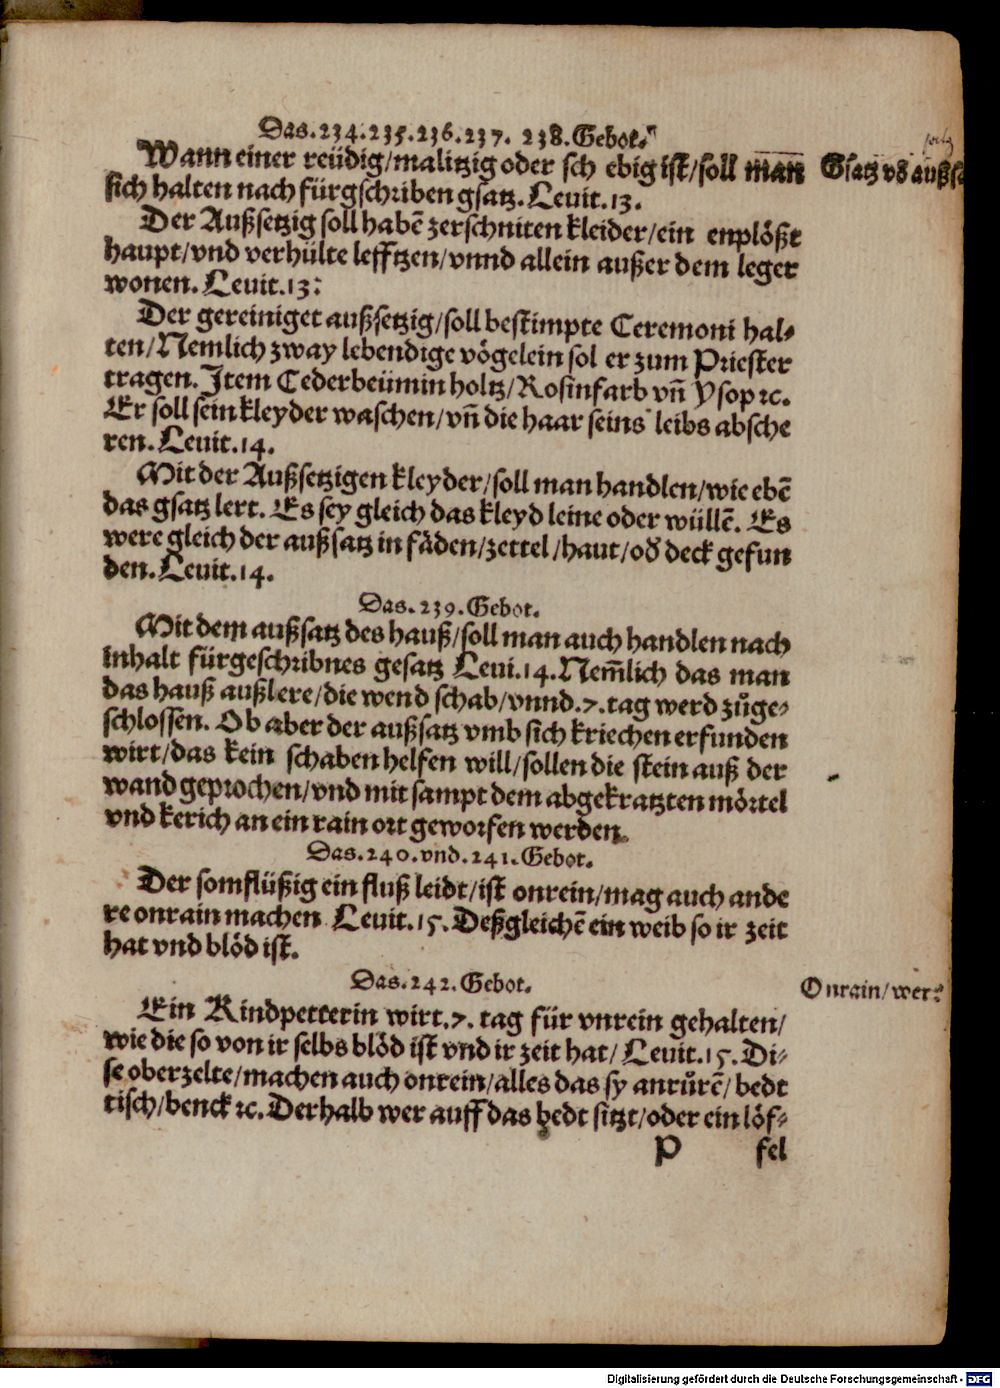 Das.234.235.236.237. 238.Gebot.
Wann einer reüdig/malitzig oder sch ebig ist/soll man
Gsatz võ außsa
sich halten nach fürgschriben gsatz. Leuit.13.
Der Außsetzig soll habẽ zerschniten kleider/ein enplößt
haupt/vnd verhülte lefftzen/vnnd allein außer dem leger
wonen. Leuit.13:
Der gereiniget außsetzig/soll bestimpte Ceremoni hal⸗
ten/Nemlich zway lebendige vögelein sol er zum Priester
tragen. Item Cederbeümin holtz/Rosinfarb vñ Ysop ꝛc.
Er soll sein kleyder waschen/vñ die haar seins leibs absche
ren. Leuit.14.
Mit der Außsetzigen kleyder/soll man handlen/wie ebẽ
das gsatz lert. Es sey gleich das kleyd leine oder wüllẽ. Es
were gleich der außsatz in fäden/zettel/haut/od̕ deck gefun
den. Leuit.14.
Das.239.Gebot.
Mit dem außsatz des hauß/soll man auch handlen nach
inhalt fürgeschribnes gesatz Leui.14. Nem̃lich das man
das hauß außlere/die wend schab/vnnd.7.tag werd zůge⸗
schlossen. Ob aber der außsatz vmb sich kriechen erfunden
wirt/das kein schaben helfen will/sollen die stein auß der
wand geprochen/vnd mit sampt dem abgekratzten mörtel
vnd kerich an ein rain ort geworfen werden.
Das.240.vnd.241.Gebot.
Der somflüßig ein fluß leidt/ist onrein/mag auch ande
re onrain machen Leuit.15. Deßgleichẽ ein weib so ir zeit
hat vnd blöd ist.
Das.242.Gebot.
Onrain/wer:
Ein Kindpetterin wirt.7. tag für vnrein gehalten/
wie die so von ir selbs blöd ist vnd ir zeit hat/ Leuit.15. Di⸗
se oberzelte/machen auch onrein/alles das sy anrůrẽ/bedt
tisch/benck ꝛc. Derhalb wer auff das bedt sitzt/oder ein löf⸗
P fel
Digitalisierung gefördert durch die Deutsche Forschungsgemeinschaft - DFG